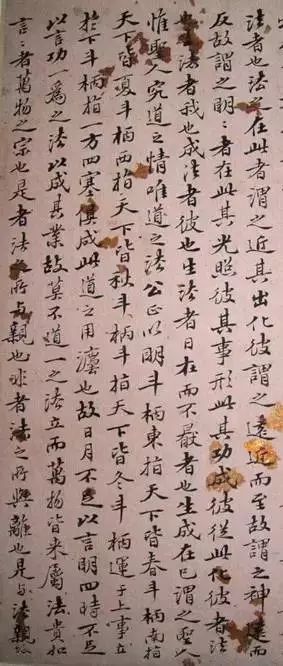 法者也法之在此者謂之近其出化彼謂之遠近而至故謂之神遠而
反故謂之明〻者在此其光照彼其事形此其功成彼從此化彼者法
也生法者我也成法者彼也生法者日在而不猒者也生成在己謂之聖人
惟聖人究道之情唯道之法公正以明斗柄東指天下皆春斗柄南指
天下皆夏斗柄西指天下皆秋斗柄北指天下皆冬斗柄運于上事立
於下斗柄指一方四塞俱成此道之用灋也故日月不足以言明四時不足
以言功一為之法以成其業故莫不道一之法立而萬物皆來屬法貴如
言〻者萬物之宗也是者法之所与親也非者法之所與離也是与法親故